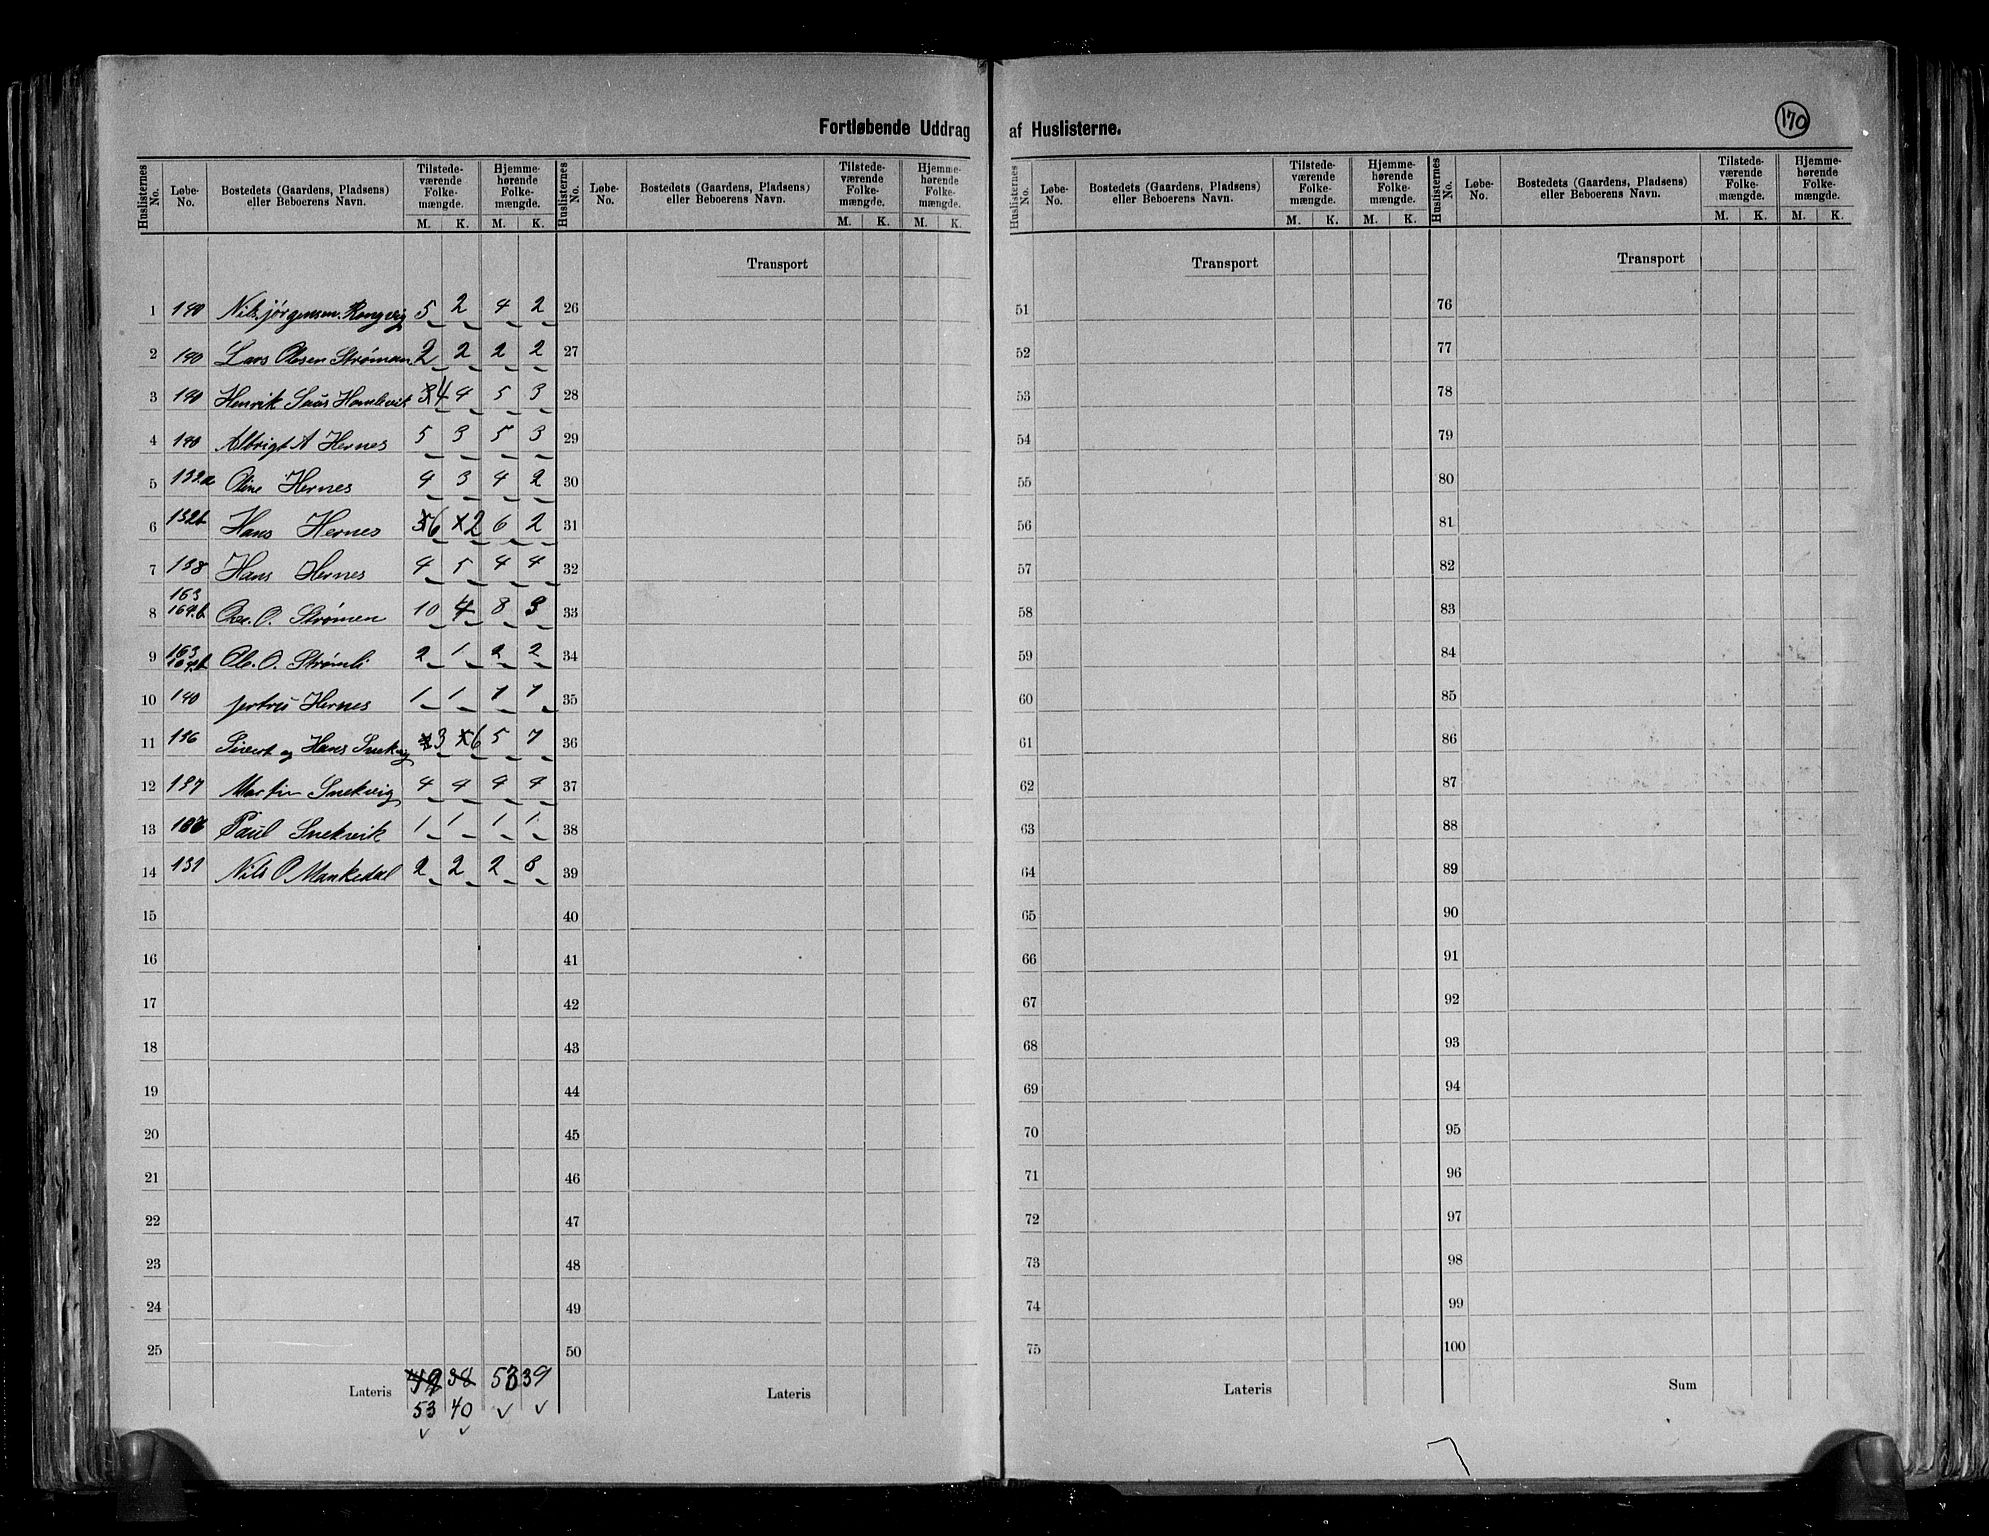 Fortløbende Uddrag af Huslisterne.
170
Huslisternes No. Løbe-No. Bostedets (Gaardens, Pladsens) eller Beboerens Navn. Tilstedeværende Folkemængde. M. K. Hjemmehørende Folkemængde. M. K.
Huslisternes No. Løbe-No. Bostedets (Gaardens, Pladsens) eller Beboerens Navn. Tilstedeværende Folkemængde. M. K. Hjemmehørende Folkemængde. M. K.
Huslisternes No. Løbe-No. Bostedets (Gaardens, Pladsens) eller Beboerens Navn. Tilstedeværende Folkemængde. M. K. Hjemmehørende Folkemængde. M. K.
Huslisternes No. Løbe-No. Bostedets (Gaardens, Pladsens) eller Beboerens Navn. Tilstedeværende Folkemængde. M. K. Hjemmehørende Folkemængde. M. K.
Transport Transport Transport
1 140 Nils jørgensen Rongvig 5 2 4 2 26 51 76
2 140 Lars Olsen Strømmen 2 2 2 2 27 52 77
3 140 Henrik Hamlevik 4 4 5 3 28 53 78
4 140 Albrigt A Hernes 5 3 5 3 29 54 79
5 132a Oline Hernes 4 3 4 2 30 55 80
6 132b Hans Hernes 6 2 6 2 31 56 81
7 138 Hans Hernes 4 5 4 4 32 57 82
8 163 164.b O. Strømen 10 4 8 3 33 58 83
9 163 164.b Ole. O. Strømli 2 1 2 2 34 59 84
10 140 jertru Hernes 1 1 1 1 35 60 85
11 136 Sivert og Hans Snekvig 3 6 5 7 36 61 86
12 137 Martin Snekvig 4 4 4 4 37 62 87
13 136 Paul Snekvik 1 1 1 1 38 63 88
14 131 Nils O Mankedal 2 2 2 3 39 64 89
15 40 65 90
16 41 66 91
17 42 67 92
18 43 68 93
19 44 69 94
20 45 70 95
21 46 71 96
22 47 72 97
23 48 73 98
24 49 74 99
25 50 75 100
Lateris 49 38 53 39 Lateris Lateris Sum
53 40